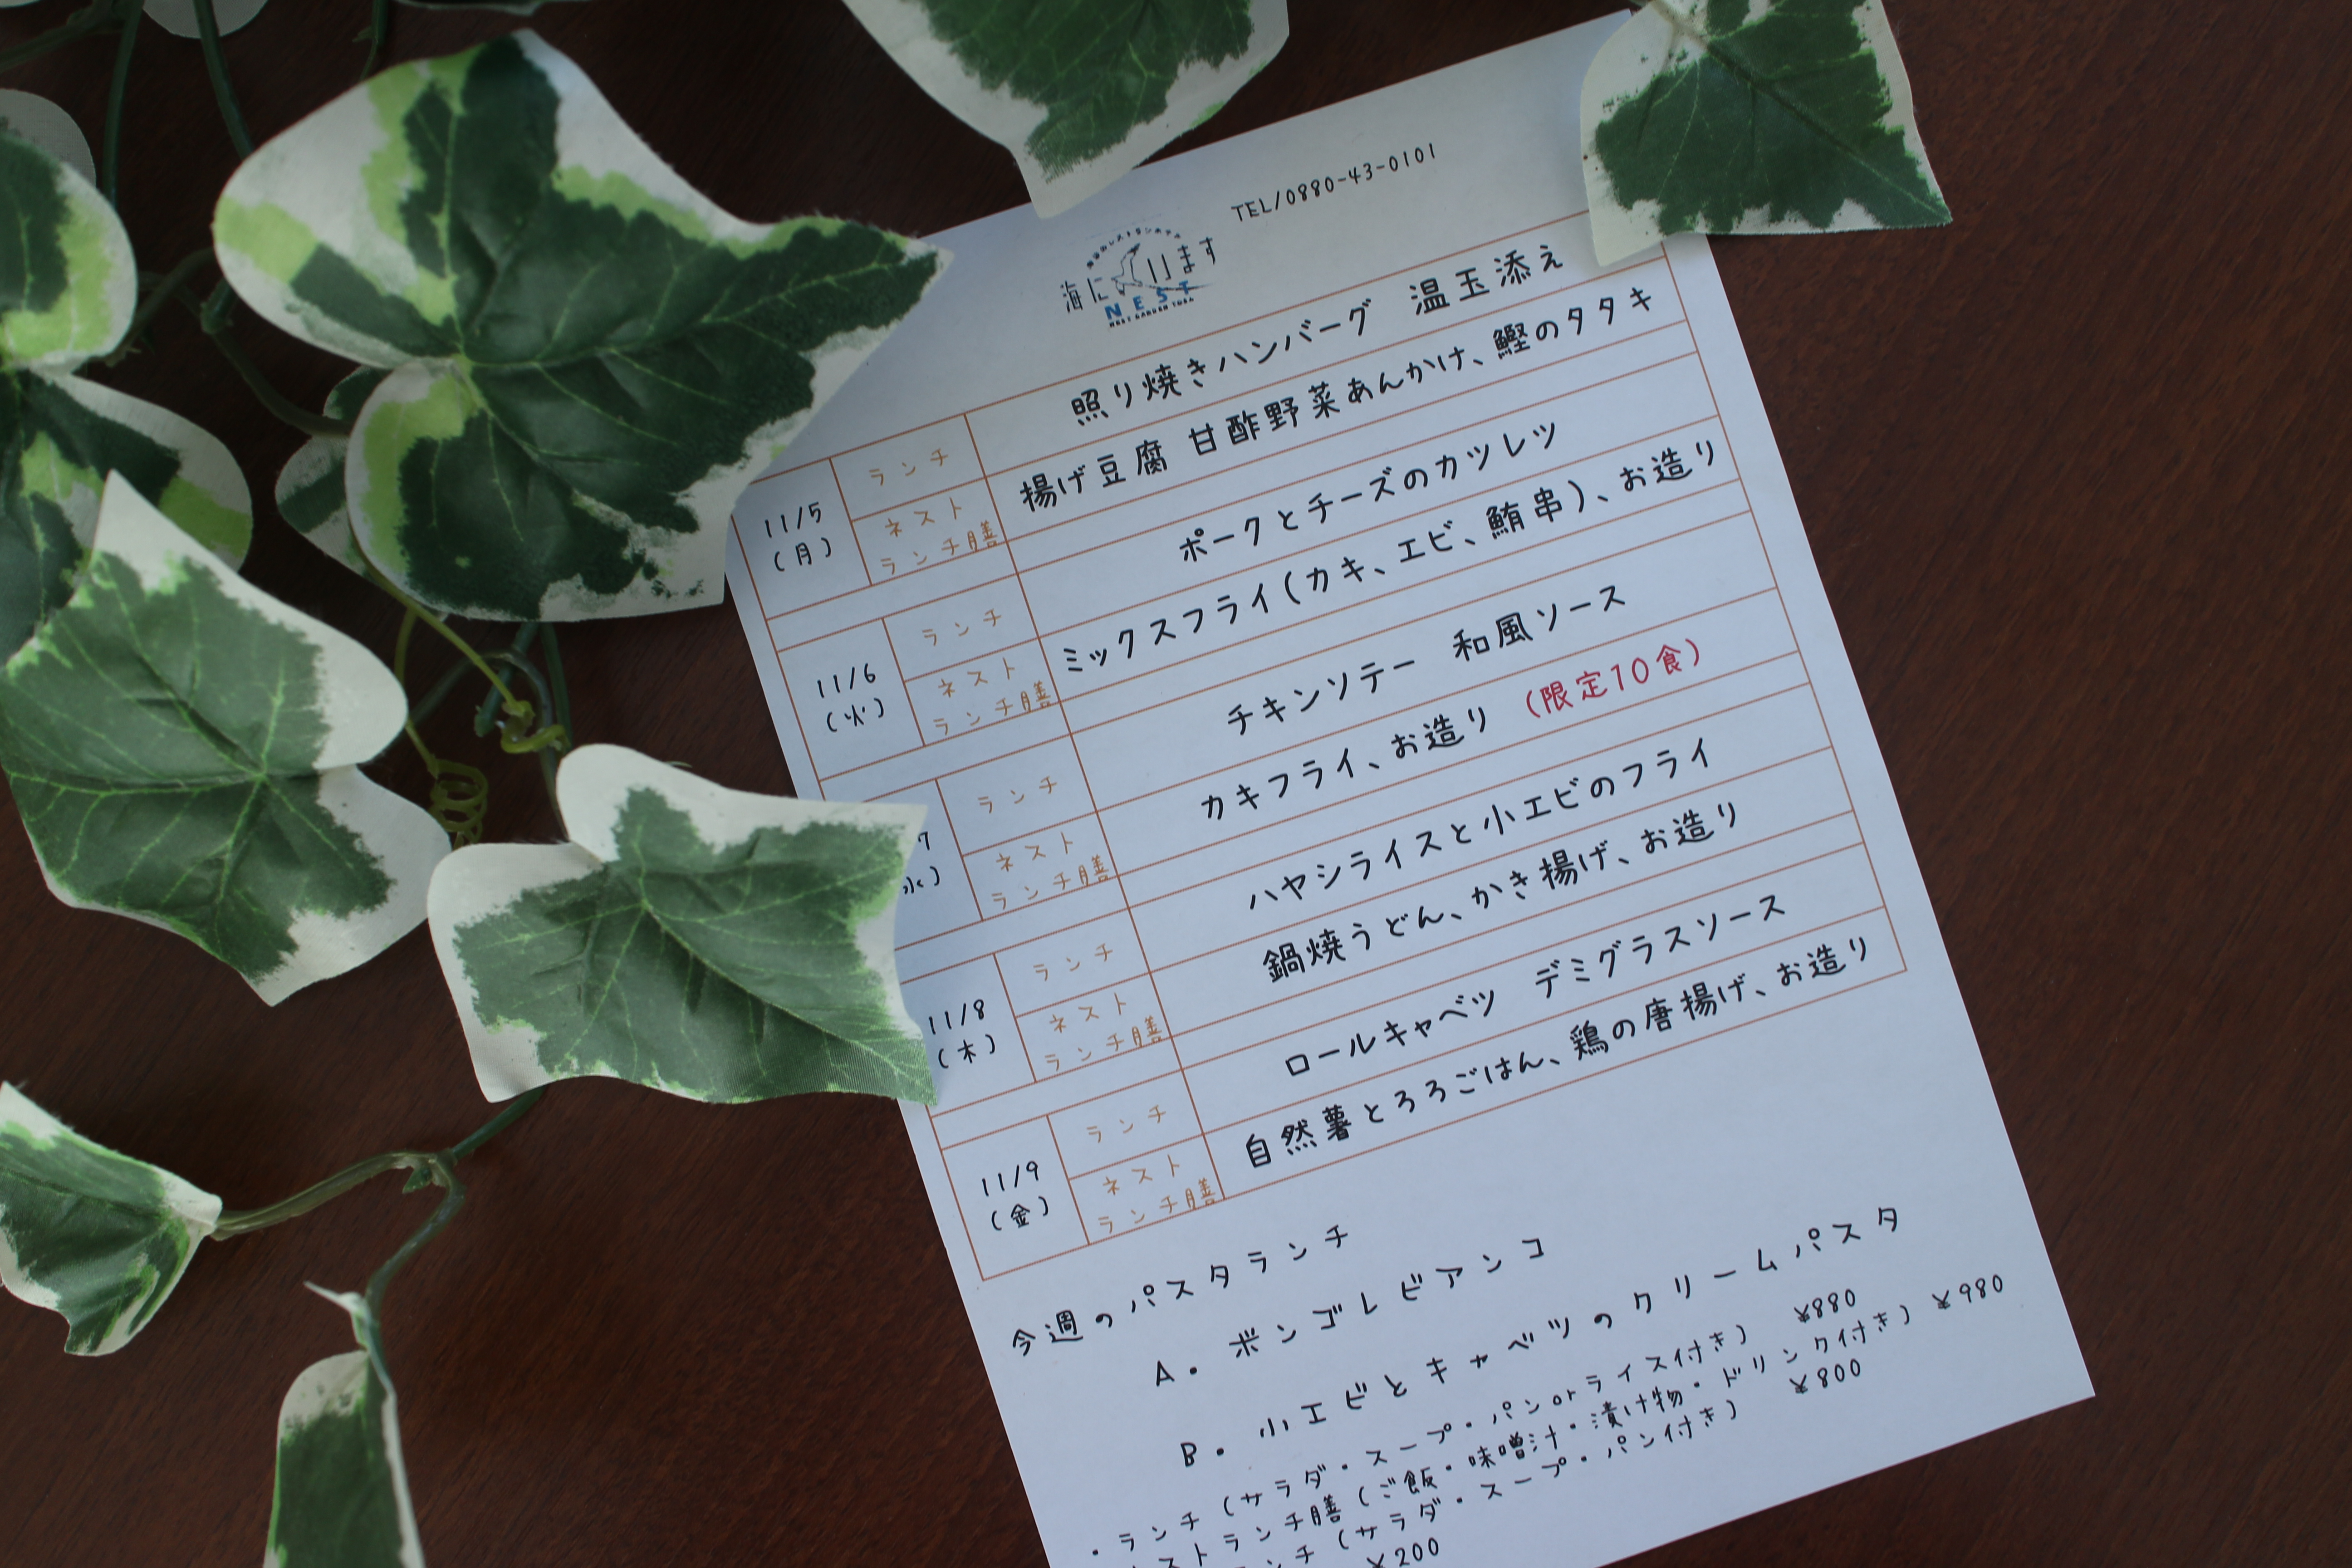 TEL/0880-43-0101
海に
ります
NEST
照り焼きハンバーグ 温玉添え
ランチ
揚げ豆腐 甘酢野菜あんかけ、鰹のタタキ
11/5
(月)
ネスト
ランチ膳
ポークとチーズのカツレツ
ランチ
ミックスフライ(カキ、エビ、鮪串)、お造り
11/6
(火)
ネスト
ランチ膳
チキンソテー 和風ソース
ランチ
カキフライ、お造り (限定10食)
7
水)
ネスト
ランチ膳
ハヤシライスと小エビのフライ
ランチ
鍋焼うどん、かき揚げ、お造り
11/8
(木)
ネスト
ランチ膳
ロールキャベツ デミグラスソース
ランチ
自然薯とろろごはん、鶏の唐揚げ、お造り
11/9
(金)
ネスト
ランチ膳
今週のパスタランチ
A. ボンゴレビアンコ
B. 小エビとキャベツのクリームパスタ
・ランチ (サラダ・スープ・パンorライス付き) ¥880
ストランチ膳 (ご飯・味噌汁・漬け物・ドリンク付き) ¥980
ンチ (サラダ・スープ・パン付き) ¥800
¥200